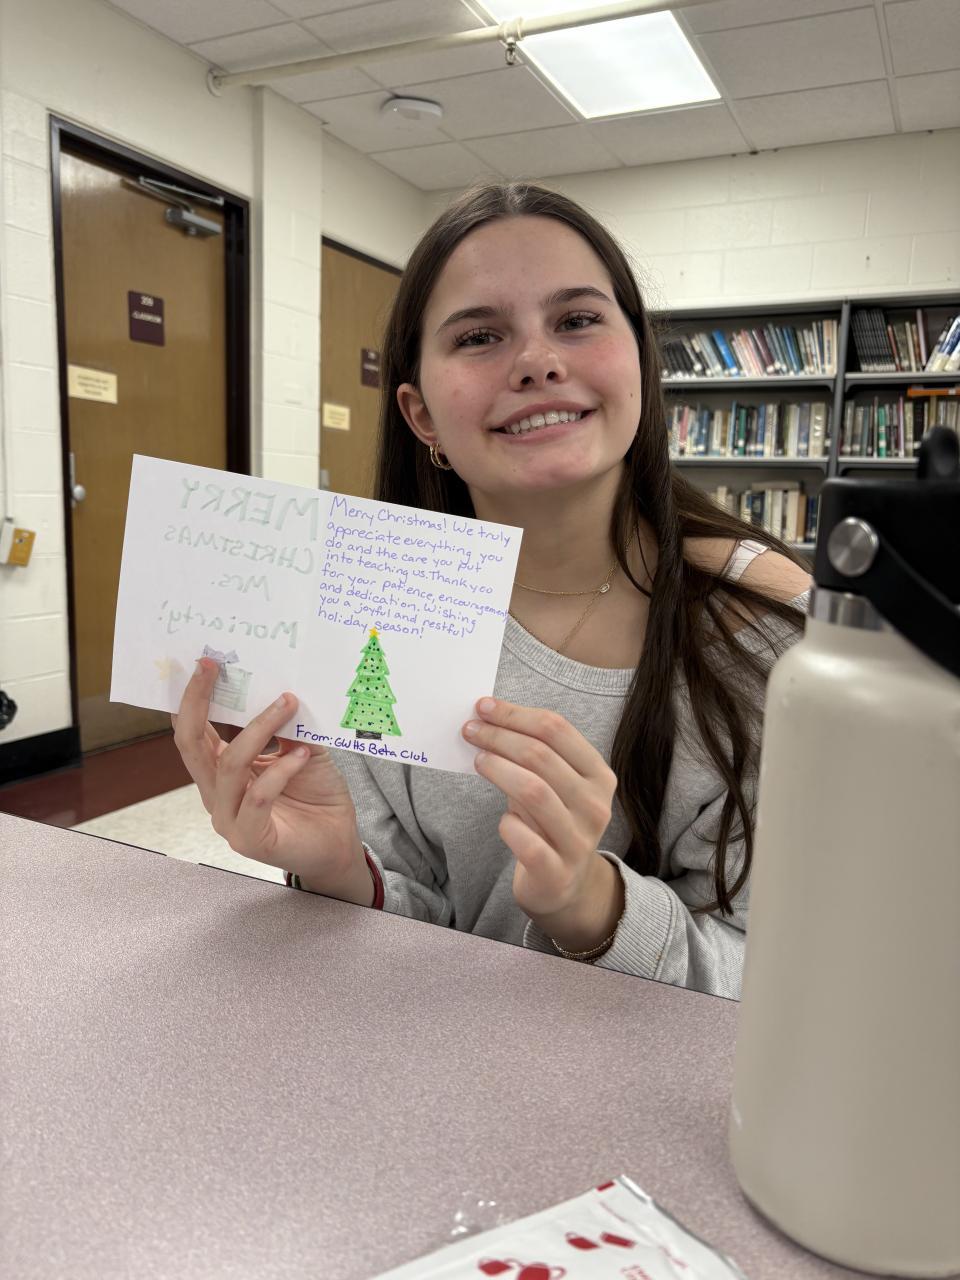 209
CLASSROOM
MERRY
CHRISTMAS
Mrs.
Moriarty!
Merry Christmas! We truly
appreciate everything you
do and the care you put
into teaching us. Thank you
for your patience, encouragement
and dedication. Wishing
you a joyful and restful
holiday season!
From: GWHS Beta Club